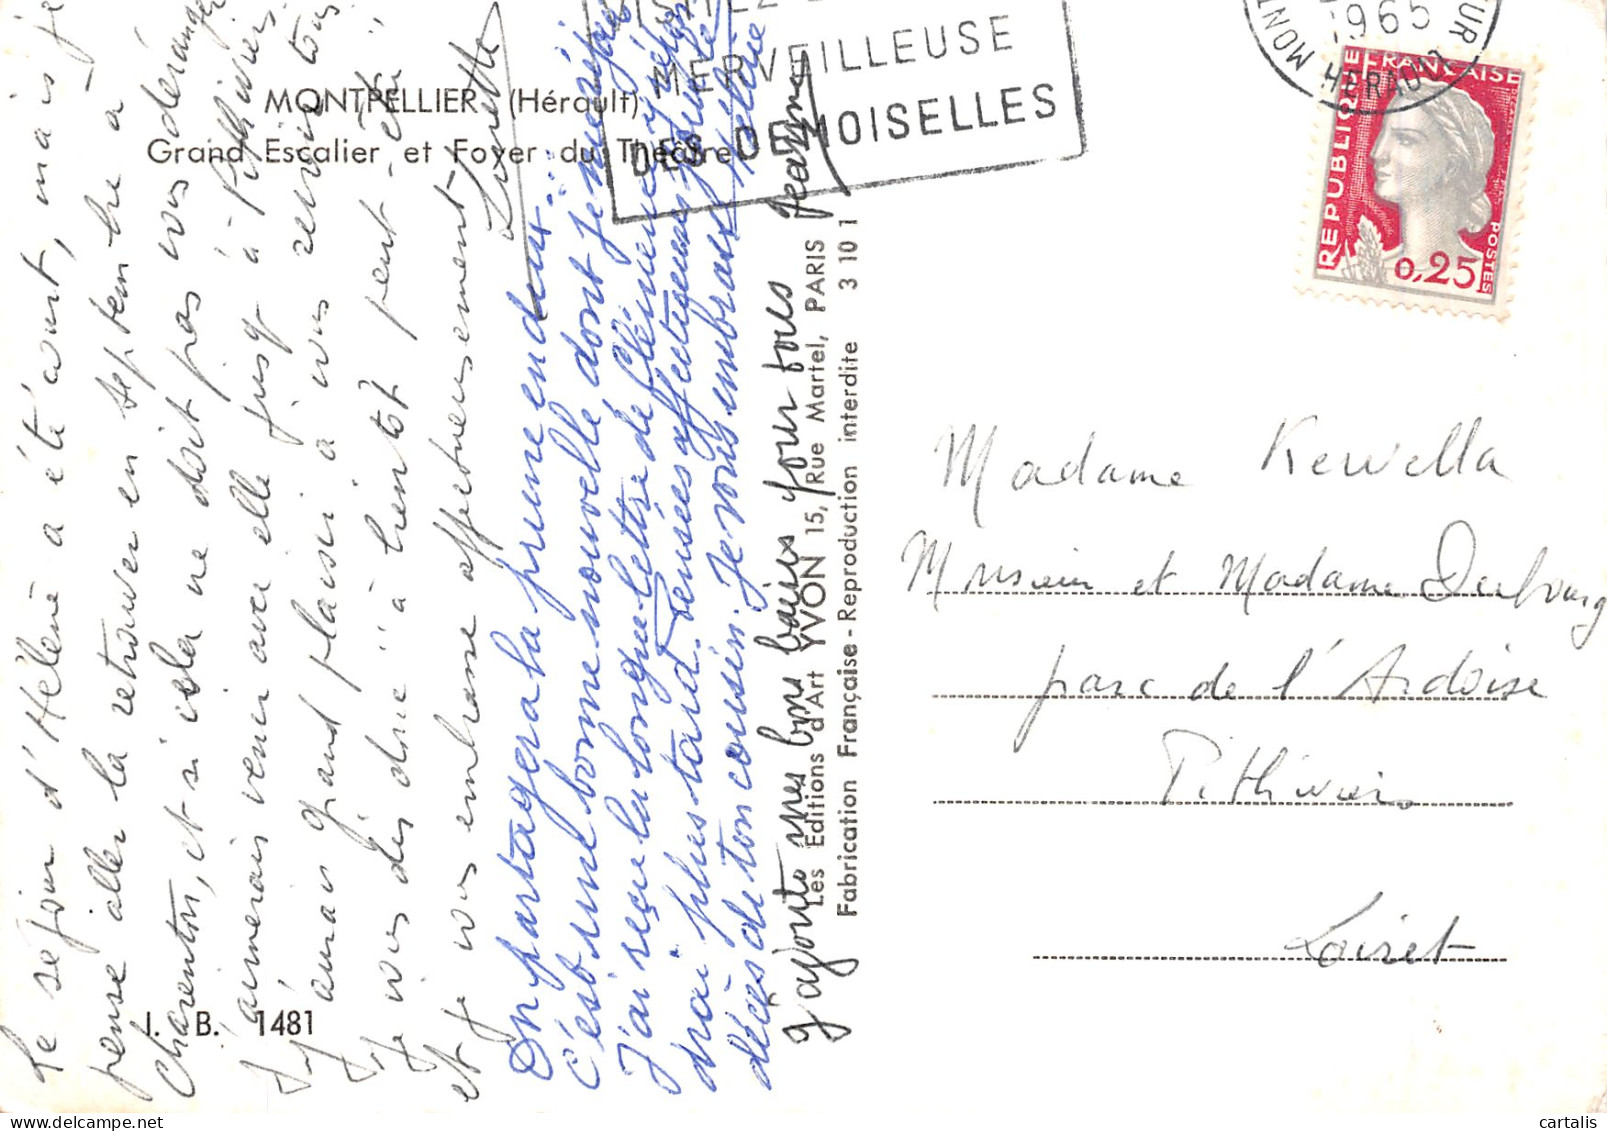 MONTPELLIER (Hérault)
Grand Escalier et Foyer du Théâtre
I. B. 1481
MERVEILLEUSE
DES DEMOISELLES
1965
HERAULT
REPUBLIQUE FRANÇAISE
POSTES
0,25
Le séjour d'Hélène a été court, mais je
pense aller la retrouver en septembre à
Charenton, et si cela ne doit pas vous déranger
j'aimerais venir avec elle jusqu'à Pithiviers.
J'aurais grand plaisir à vous revoir tous
Je vous dis donc "à bientôt peut-être"
et je vous embrasse affectueusement
On partagera la prune en deux...
C'est une bonne nouvelle dont je me réjouis
J'ai reçu la longue lettre de Clémence, j'y répon
drai plus tard. Pensées affectueuses pour le
décès de ton cousin. Je vous embrasse Hélène
J'ajoute mes bons baisers pour tous Jeanine
Les Editions d'Art YVON 15, Rue Martel, PARIS
Fabrication Française - Reproduction interdite 3 10 1
Madame Kervella
Monsieur et Madame Dubourg
parc de l'Ardoise
Pithiviers
Loiret
cartalis